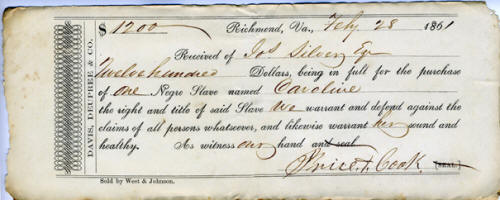 DAVIS, DEUPREE & CO.
$1200 Richmond, Va., Feby 28 1861
Received of Jas Silver Eq
Twelve hundred Dollars, being in full for the purchase
of One Negro Slave named Caroline
the right and title of said Slave we warrant and defend against the
claims of all persons whatsoever, and likewise warrant her sound and
healthy. As witness our hand and seal
Price & Cook [SEAL]
Sold by West & Johnson.